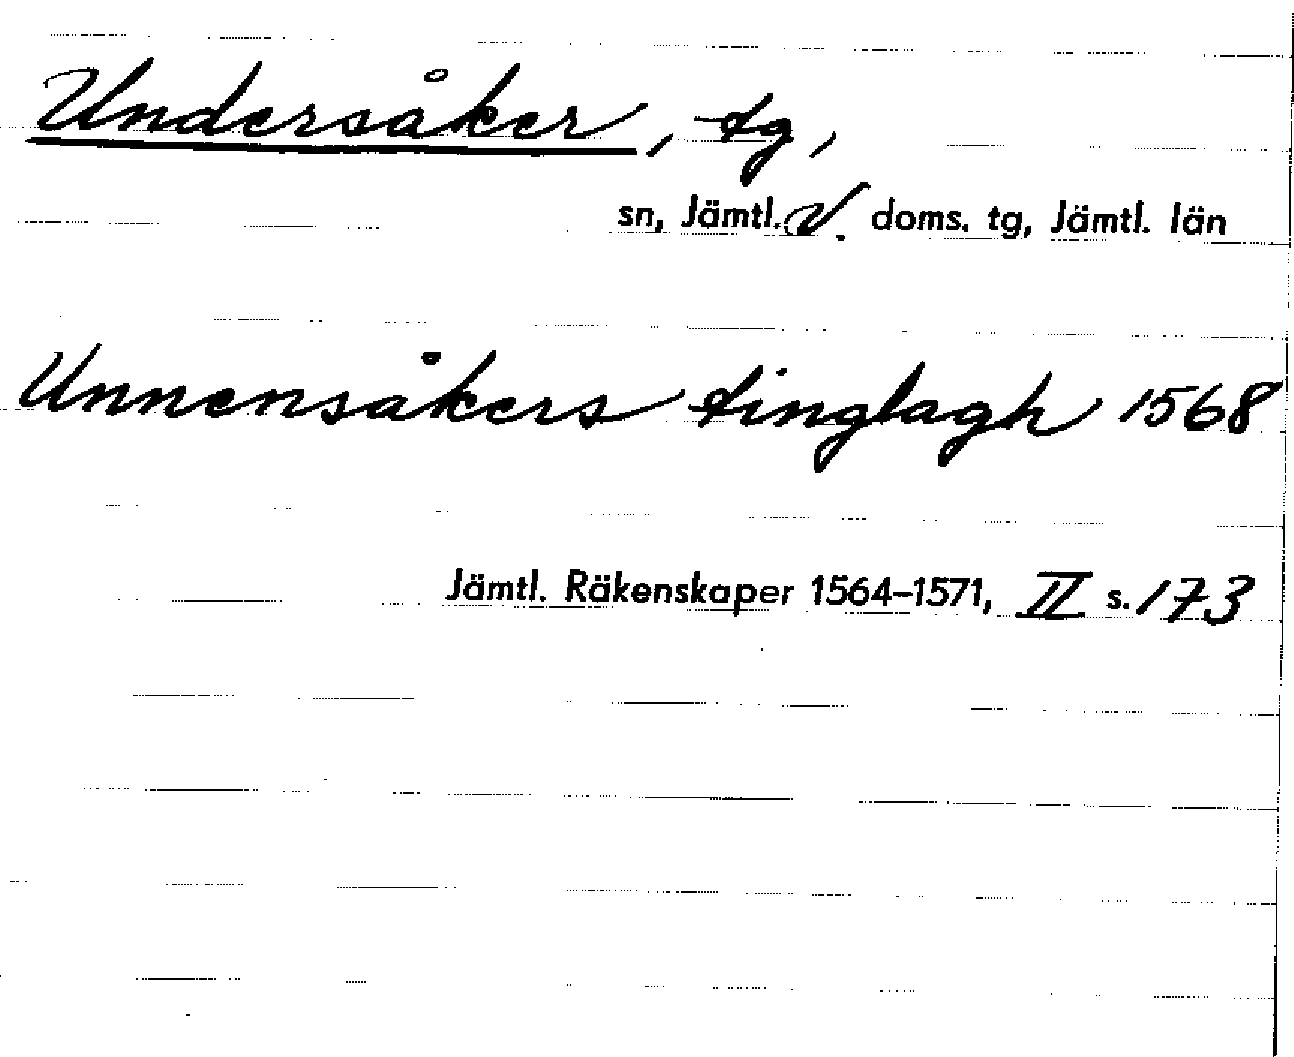 Undersåker, tg,
sn, Jämtl. V. doms. tg, Jämtl. län
Unnensåkers tinglagh 1568
Jämtl. Räkenskaper 1564–1571, II s. 173